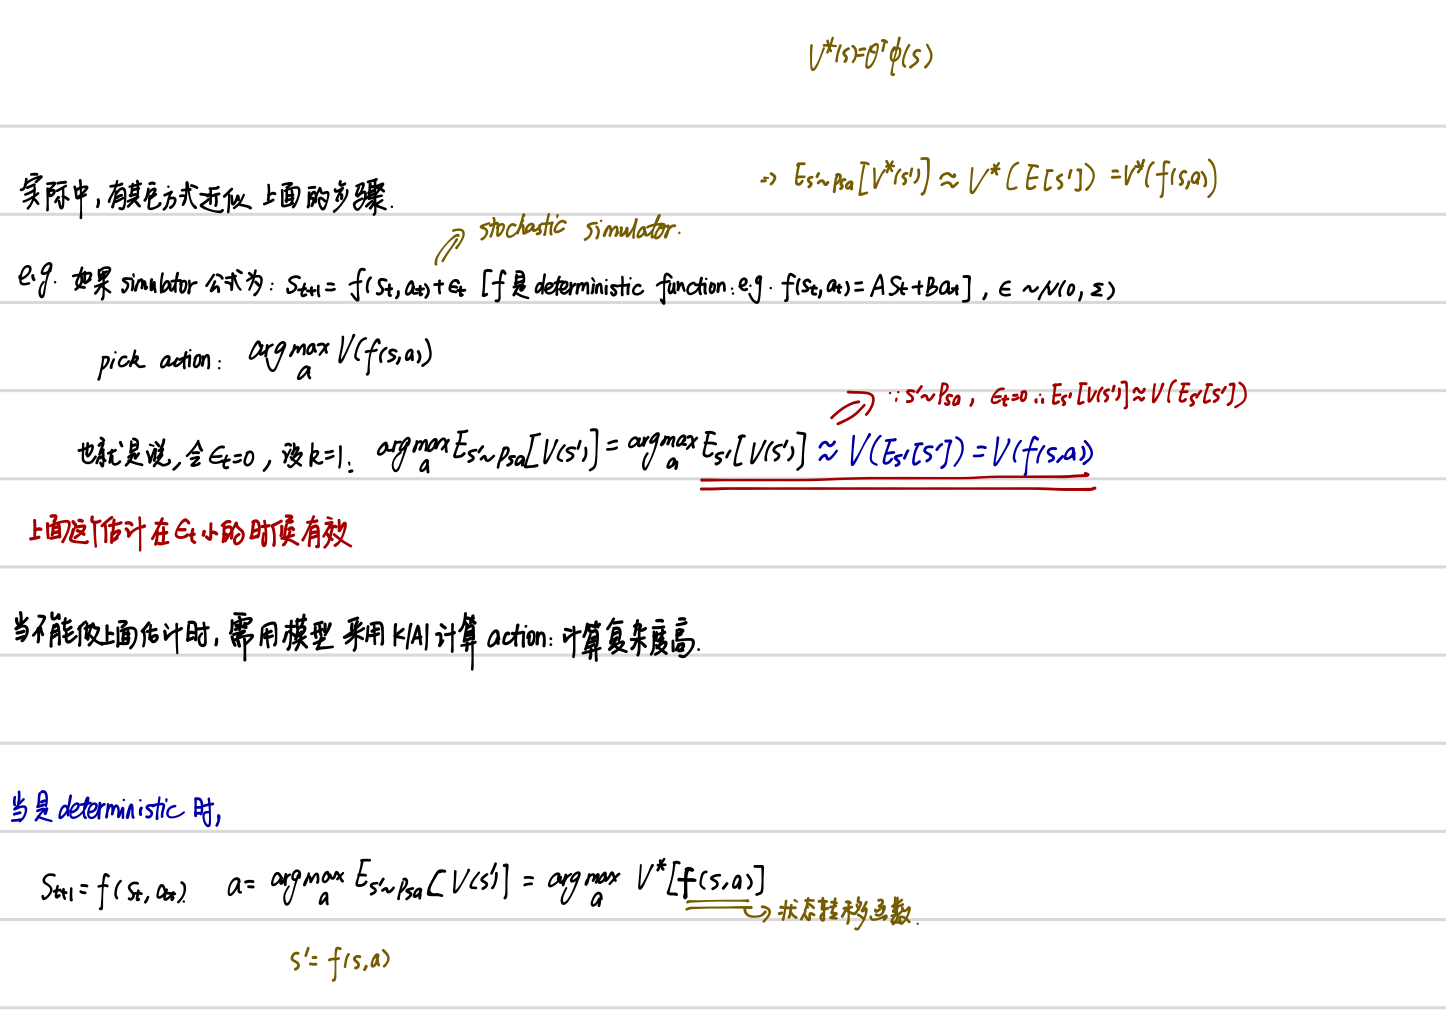 V*(s)=θᵀφ(s)
⇒ E_{s'~Psa}[V*(s')] ≈ V*(E[s']) = V*(f(s,a))
实际中,有其它方式近似上面的步骤.
stochastic simulator.
e.g. 如果 simulator 公式为: S_{t+1} = f(S_t, a_t) + ϵ_t [f 是 deterministic function: e.g. f(S_t, a_t) = A S_t + B a_t], ϵ ~ N(0, Σ)
pick action: argmax_a V(f(s,a))
∵ s'~Psa, ϵ_t=0 ∴ E_{s'}[V(s')] ≈ V(E_{s'}[s'])
也就是说,令 ϵ_t=0, 设 k=1: argmax_a E_{s'~Psa}[V(s')] = argmax_a E_{s'}[V(s')] ≈ V(E_{s'}[s']) = V(f(s,a))
上面这个估计在 ϵ_t 小的时候有效
当不能做上面估计时,需用模型 采用 k|A| 计算 action: 计算复杂度高.
当是 deterministic 时,
S_{t+1} = f(S_t, a_t). a = argmax_a E_{s'~Psa}[V(s')] = argmax_a V*[f(s,a)]
状态转移函数.
s' = f(s,a)